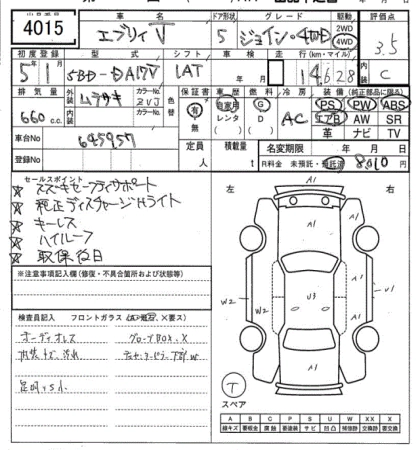 4015
車名
エブリィ V
ドア形状
5
グレード
ジョイン・4WD
駆動
2WD
4WD
評価点
3.5
初度登録
5年1月
型式
5BD-DA17V
シフト
IAT
車検
年 月
走行(km・マイル)
14,628
C
排気量
660cc
外装
ムラサキ
カラーNo.
ZVJ
内装
カラーNo.
色替
保証書
有
無
車歴
自家用
レンタ
燃料
G
D
冷房
AC
装備(純正部品に限る)
PS PW ABS
エアB AW SR
革 ナビ TV
車台No
645957
登録No
定員
人
積載量
t
名変期限
年 月 日
R料金 未預託・預託済 8,010
セールスポイント
スズキセーフティサポート
純正ディスチャージHライト
キーレス
ハイルーフ
取保後日
左
右
A1
A1
W2
W2
U3
U1
A1
A1
※注意事項記入欄(修復・不具合箇所および状態等)
検査員記入 フロントガラス
オーディオレス
グローブBOX.X
内装キズ、汚れ
T
スペア
A B C P S U W X XX
線キズ 要板金 腐蝕 要塗装 サビ 凹凸 補修跡 要交換 交換済